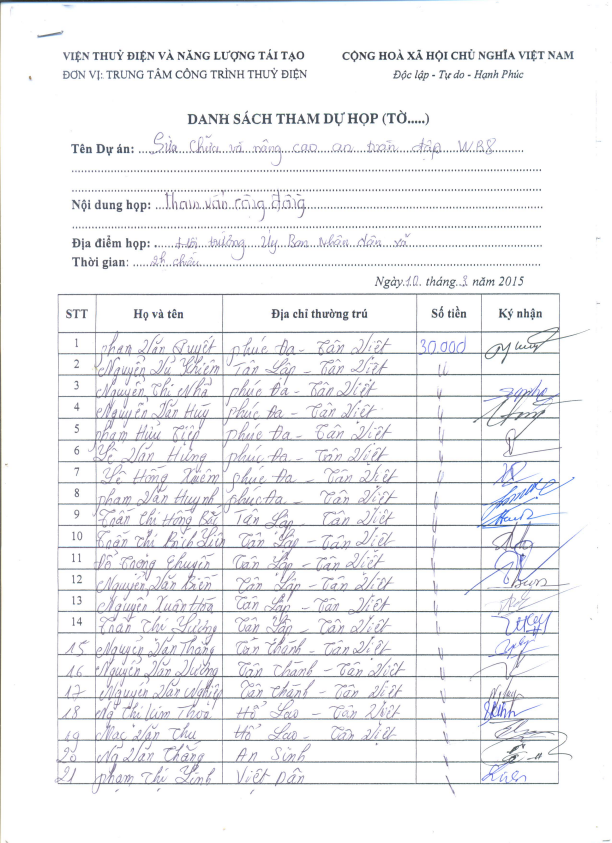 VIỆN THUỶ ĐIỆN VÀ NĂNG LƯỢNG TÁI TẠO
ĐƠN VỊ: TRUNG TÂM CÔNG TRÌNH THUỶ ĐIỆN
CỘNG HOÀ XÃ HỘI CHỦ NGHĨA VIỆT NAM
Độc lập - Tự do - Hạnh Phúc
DANH SÁCH THAM DỰ HỌP (TỜ.....)
Tên Dự án: Sửa chữa và nâng cao an toàn đập WB8
Nội dung họp: Tham vấn cộng đồng
Địa điểm họp: Hội trường Ủy Ban Nhân dân xã
Thời gian: 2h chiều
Ngày 10 tháng 3 năm 2015
STT Họ và tên Địa chỉ thường trú Số tiền Ký nhận
1 Phạm Văn Quyết Phúc Đa - Tân Việt 30.000
2 Nguyễn Vũ Khiêm Tân Lập - Tân Việt "
3 Nguyễn Thị Nhã Phúc Đa - Tân Việt "
4 Nguyễn Văn Huy Phúc Đa - Tân Việt "
5 Phạm Hữu Tiệp Phúc Đa - Tân Việt "
6 Lê Văn Hưng Phúc Đa - Tân Việt "
7 Lê Hồng Khiêm Phúc Đa - Tân Việt "
8 Phạm Văn Huynh Phúc Đa - Tân Việt "
9 Trần Thị Hồng Bắc Tân Lập - Tân Việt "
10 Trần Thị Bích Liên Tân Lập - Tân Việt "
11 Trọng Khuyến Tân Lập - Tân Việt "
12 Nguyễn Văn Biến Tân Lập - Tân Việt "
13 Nguyễn Xuân Hòa Tân Lập - Tân Việt "
14 Trần Thị Lương Tân Lập - Tân Việt "
15 Nguyễn Văn Thắng Tân Thành - Tân Việt "
16 Nguyễn Văn Dương Tân Thành - Tân Việt "
17 Nguyễn Văn Nghiệp Tân Thành - Tân Việt "
18 Ng Thị Kim Thoa Hổ Lao - Tân Việt "
19 Mạc Văn Thu Hổ Lao - Tân Việt "
20 Ng Văn Thắng An Sinh
21 Phạm Thị Linh Việt Dân